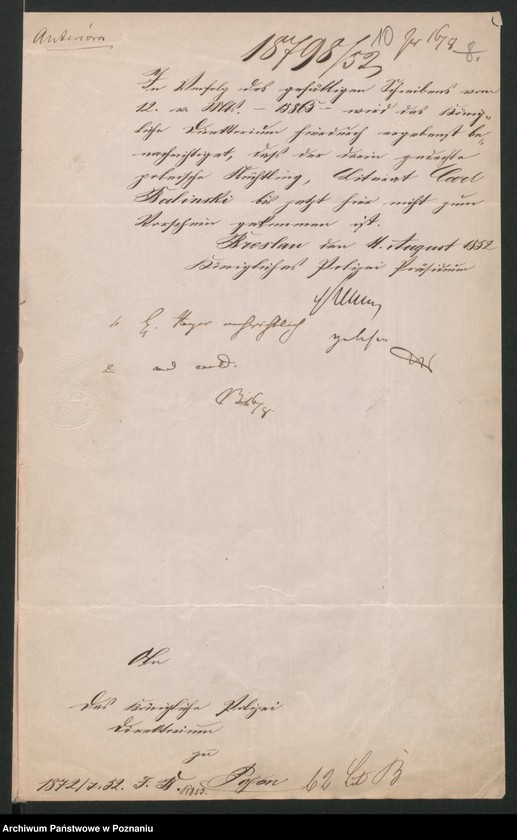 Anteriora
18798/52
10 pr 16/8
8.
In Verfolg des gefälligen Schreibens vom
12. v. Mts. – 15865 – wird das König-
liche Direktorium hierdurch ergebenst be-
nachrichtiget, daß der darin gedachte
polnische Flüchtling, Literat Carl
Kalinski bis jetzt hier nicht zum
Vorschein gekommen ist.
Breslau den 11. August 1852
Königliches Polizei Präsidium
gelesen
16/8
An
das Königliche Polizei
Direktorium
zu
Posen
1872/7. 52.
62 B
Archiwum Państwowe w Poznaniu